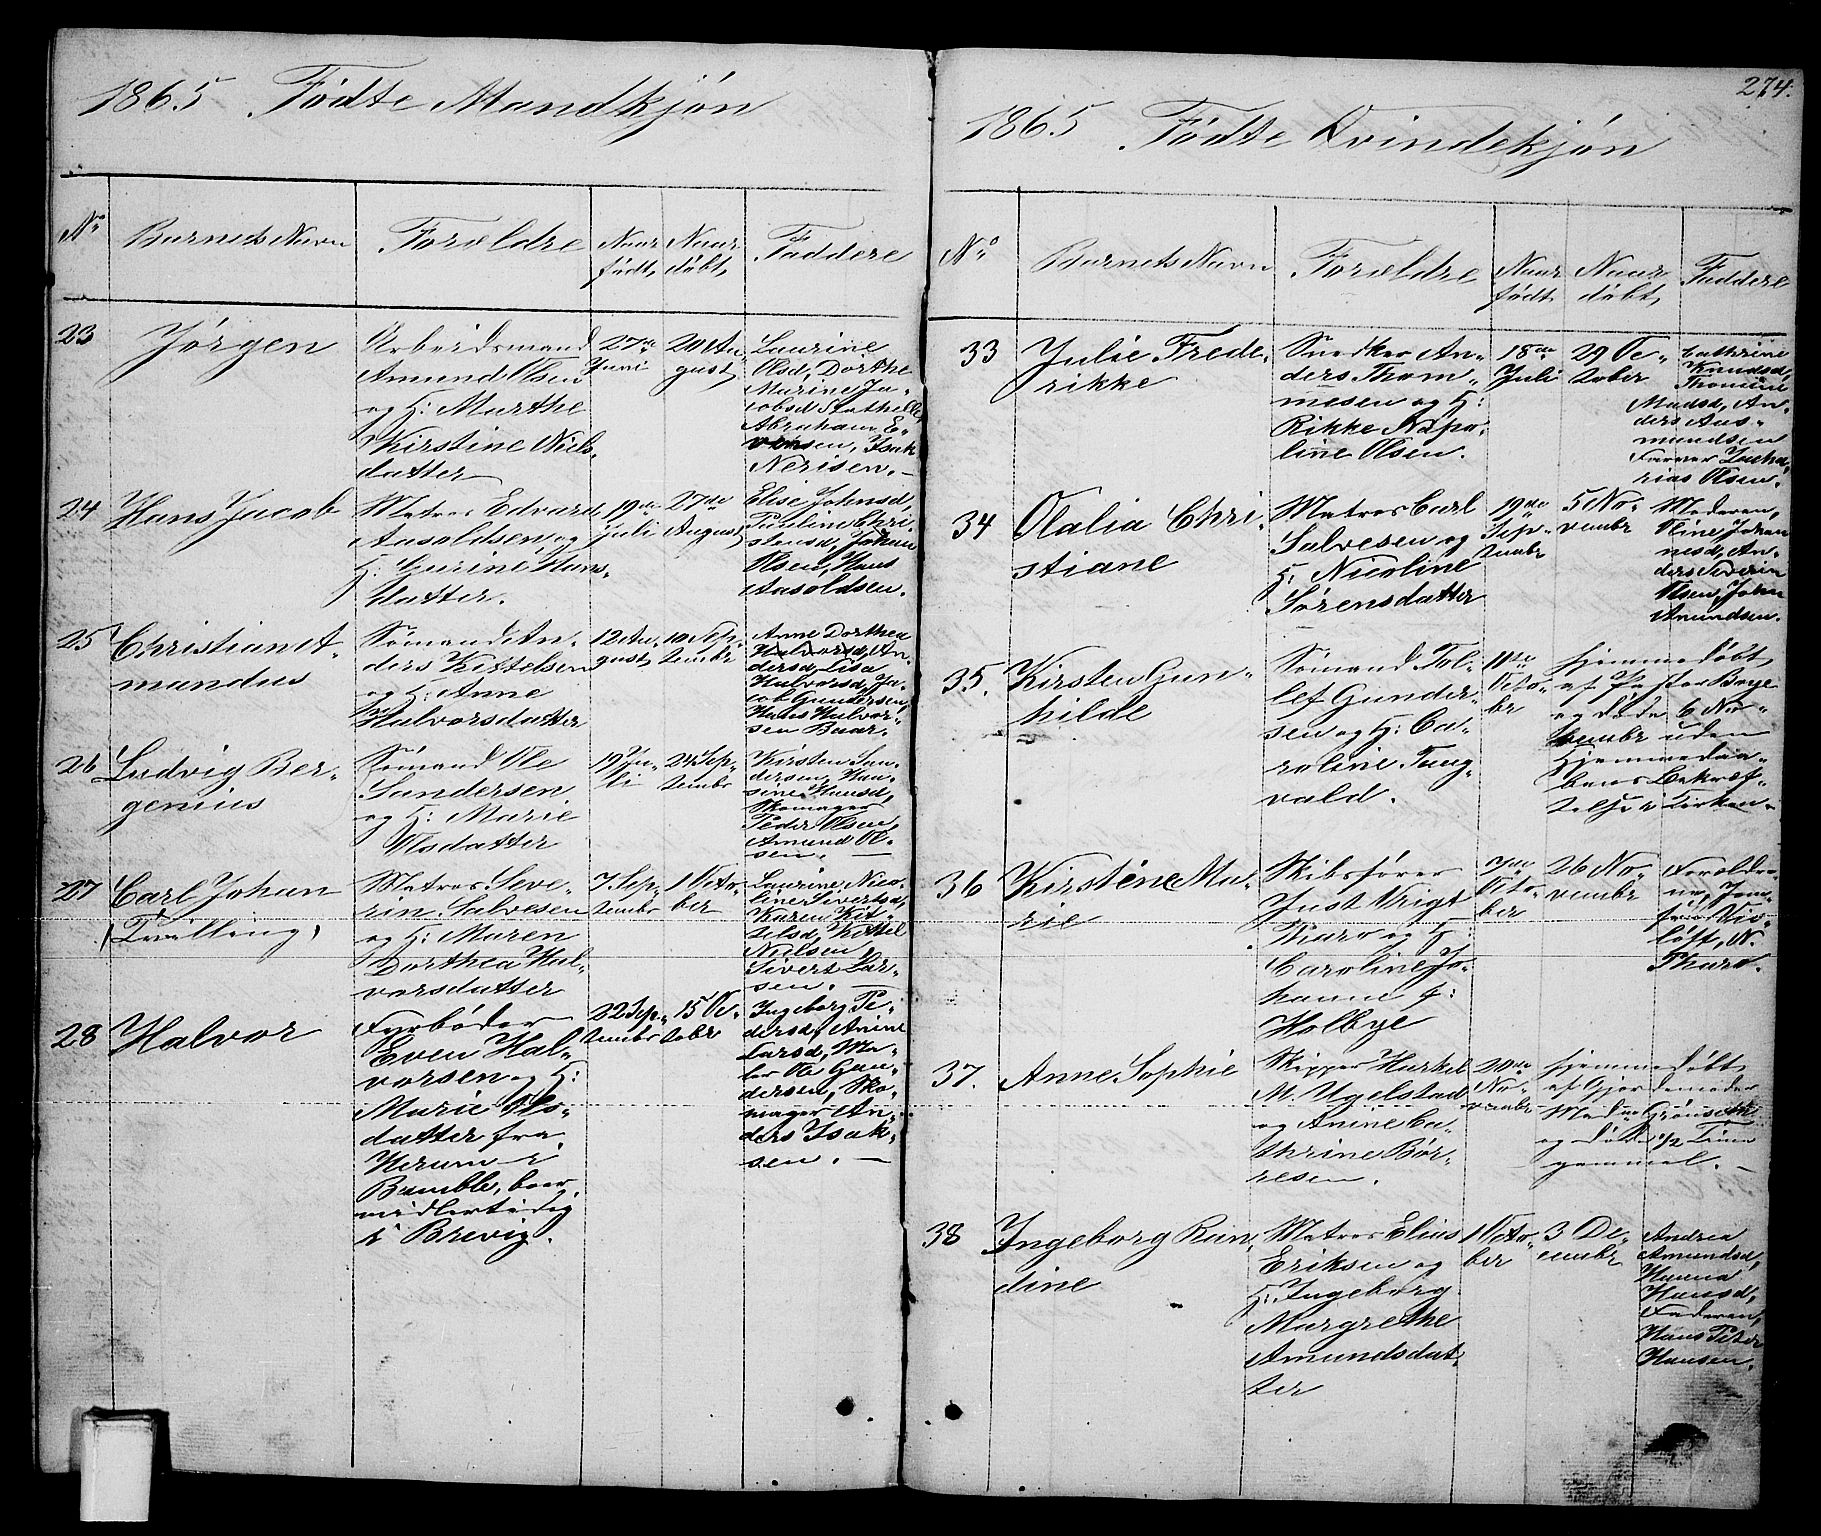 1865 Födte Mandkjön
No
Barnets Navn
Forældre
Naar
födt,
Naar
döbt,
Faddere
23
Jörgen
Arbeidsmand
Amund Olsen
og H: Marthe
Kirstine Niels-
datter
27de
Juni
20 Au-
gust,
Laurine
Olsd, Dorthe
Marine Ja-
cobsd Stathelle,
Abraham E-
vensen, Isak
Nerisen. —
24
Hans Jacob
Matros Edvard
Aasoldsen og
H: Hans-
datter.
19de
Juli
27de
August,
Elise Johnsd,
Pauline Chri-
stensd, Johan
Olsen, Hans
Aasoldsen.
25
Christian A-
mandus
Sömand An-
ders Kittelsen
og H: Anne
Halvorsdatter
12 Au-
gust,
10 Sep-
tembr
Anne Dorthea
Halvorsd, An-
dersd, Lisa
Halvorsd, Ja-
cob Gundersen,
Hans Halvor-
sen Baar.
26
Ludvig Ber-
genius
Sömand Ole
Sandersen
og H: Marie
Olsdatter
19 Ju-
li
24 Sep-
tembr
Kirsten San-
dersen, Han-
sine Hansd,
Skomager
Peder Olsen,
Amund Ol-
sen. —
27
Carl Johan
(Tvilling)
Matros Seve-
rin Salvesen
og H: Maren
Dorthea Hal-
vorsdatter
7 Sep-
tembr
1 Octo-
ber
Laurine Nico-
line Sivertsd,
Karen Kit-
telsd, Kittel
Nielsen,
Sivert Lar-
sen. —
28
Halvor
Fyrböder
Even Hal-
vorsen og H:
Marie Ols-
datter fra
i
Bamble, boer
midlertidig
i Brevig.
22 Sep-
tembr
15 Oc-
tobr
Ingeborg Pe-
dersd, Anine
Larsd, Ma-
ler Ole Gun-
dersen, Sko-
mager An-
ders Isak-
sen. —
274.
1865 Födte Qvindekjön
No
Barnets Navn
Forældre
Naar
födt,
Naar
döbt,
Faddere
33
Julie Frede-
rikke
Snedker An-
ders Thom-
mesen og H:
Rikke Napo-
line Olsen.
18de
Juli
29 Oc-
tober
Cathrine
Knudsd,
Thomine
Madsd, An-
ders Aas-
mundsen
Farver Zacha-
rias Olsen.
34
Olalia Chri-
stiane
Matros Carl
Salvesen og
H: Nicoline
Sörensdatter
19de
Sep-
tembr
5 No-
vembr
Moderen,
Oline Johan-
nesd, An-
ders Severin
Olsen, John
Amundsen.
35.
Kirsten Gun-
hilde
Sömand Tol-
lef Gunder-
sen og H: Ca-
roline Tang-
vald.
11te
Octo-
br
Hjemmedöbt
af Pastor Boye
og döde 6 No-
vembr uden
Hjemmedaa-
bens Bekræf-
telse i Kirken.
36
Kirstine Ma-
rie
Skibsförer
Just Wrigt
Tharo og H:
Caroline Jo-
hanne f:
Holbye
3die
Octo-
ber
26 No-
vembr
Forældre-
ne,
N.
Tharo.
37.
Anne Sophie
Skipper Harkel
M. Ugelstad
og Anine Ca-
thrine Bör-
resen.
20de
No-
vembr
Hjemmedöbt
af Gjordemoder
og döde 1/2 Time
gammel. —
38
Ingeborg Run-
dine
Matros Elias
Eriksen og
H: Ingeborg
Margrethe
Amundsdat-
ter
1 Octo-
ber
3 De-
cembr
Andrea
Amundsd,
Hanna
Hansd,
Faderen,
Hans Peter
Hansen.